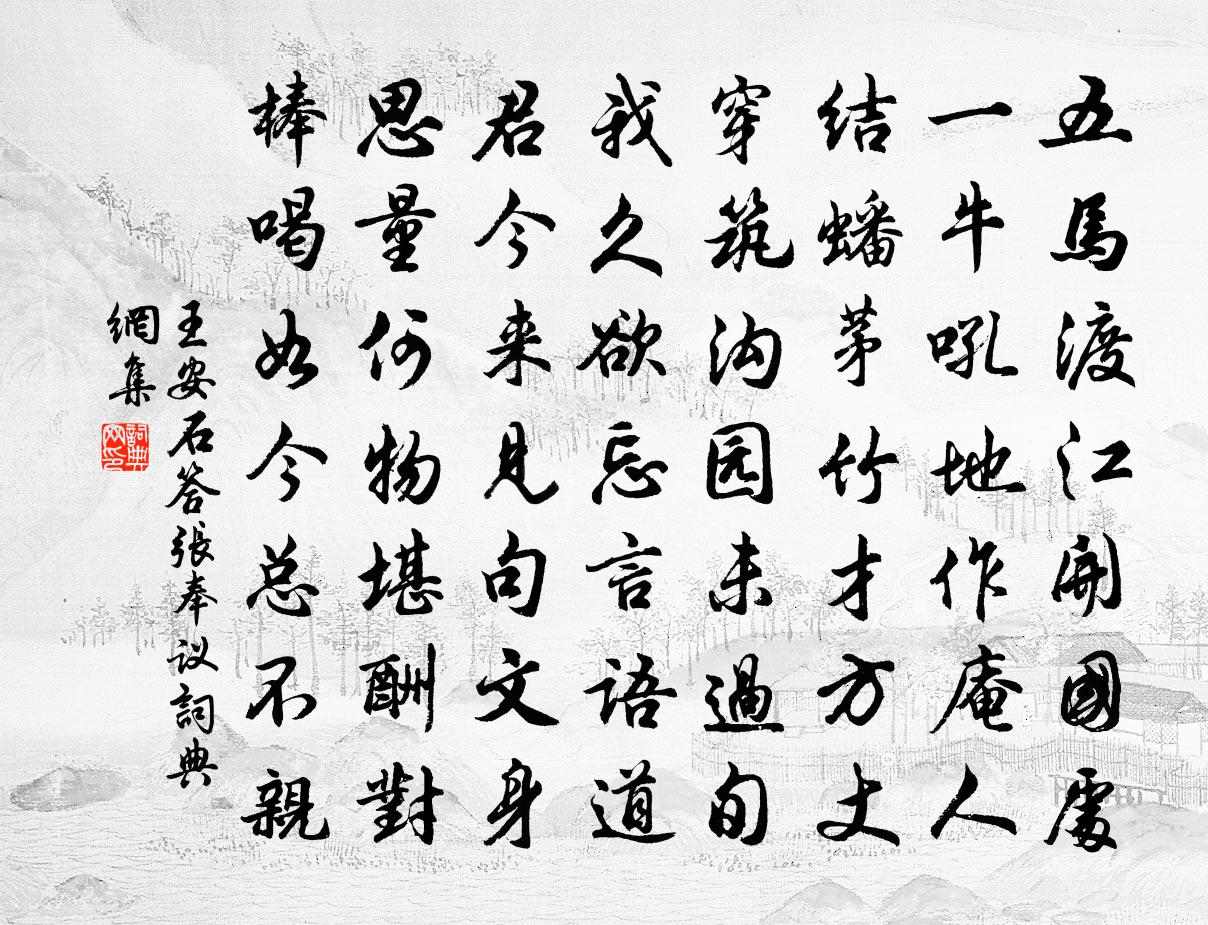 五馬渡江開國處
一牛吼地作庵人
結蟠茅竹才方丈
穿筑沟园未過旬
我久欲忘言语道
君今来見句文身
思量何物堪酬對
棒喝如今总不親
王安石答張奉议詞典
網集
詞典
网印